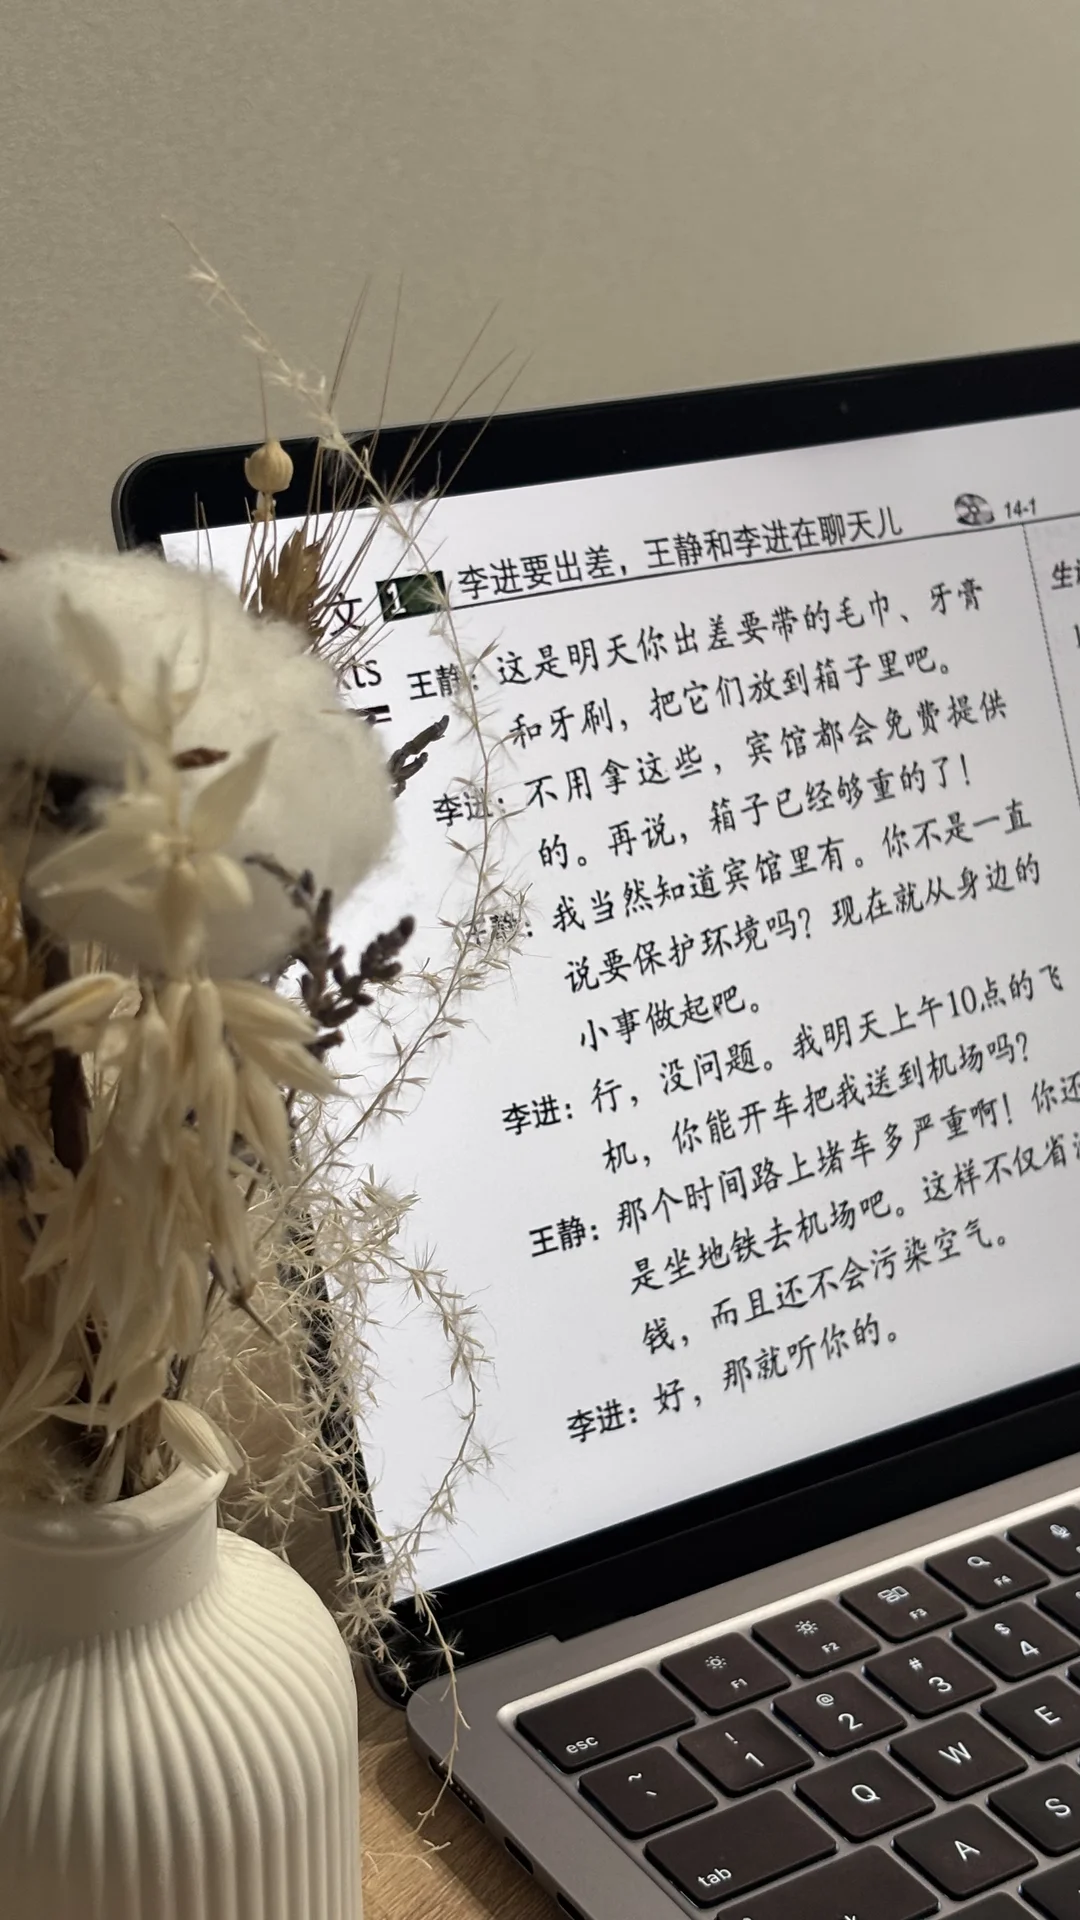 文
1 李进要出差，王静和李进在聊天儿
14-1
王静：这是明天你出差要带的毛巾、牙膏
和牙刷，把它们放到箱子里吧。
李进：不用拿这些，宾馆都会免费提供
的。再说，箱子已经够重的了！
王静：我当然知道宾馆里有。你不是一直
说要保护环境吗？现在就从身边的
小事做起吧。
李进：行，没问题。我明天上午10点的飞
机，你能开车把我送到机场吗？
王静：那个时间路上堵车多严重啊！你还
是坐地铁去机场吧。这样不仅省
钱，而且还不会污染空气。
李进：好，那就听你的。
esc
F1
F2
F3
F4
~ `
! 1
@ 2
# 3
$ 4
tab
Q
W
E
A
S